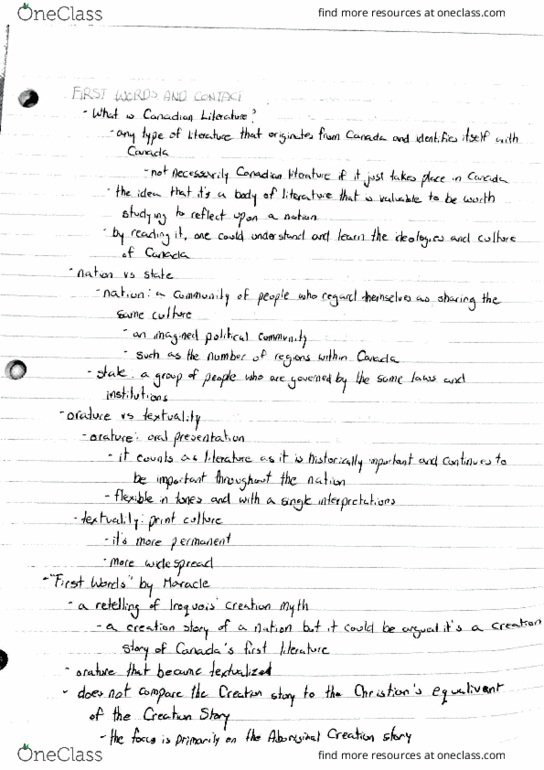 OneClass
find more resources at oneclass.com
FIRST WORDS AND CONTACT
- What is Canadian Literature?
- any type of literature that originates from Canada and identifies itself with
Canada
- not necessarily Canadian literature if it just takes place in Canada
- the idea that it's a body of literature that is valuable to be worth
studying to reflect upon a nation
- by reading it, one could understand and learn the ideologies and culture
of Canada
- nation vs state
- nation: a community of people who regard themselves as sharing the
same culture
- an imagined political community
- such as the number of regions within Canada
- state: a group of people who are governed by the same laws and
institutions
- orature vs textuality
- orature: oral presentation
- it counts as literature as it is historically important and continues to
be important throughout the nation
- flexible in tones and with a single interpretations
- textuality: print culture
- it's more permanent
- more widespread
- "First Words" by Moracle
- a retelling of Iroquois' creation myth
- a creation story of a nation but it could be argued it's a creation
story of Canada's first literature
- orature that became textualized
- does not compare the Creation story to the Christian's equalivent
of the Creation Story
- the focus is primarily on the Aboriginal Creation story
OneClass
find more resources at oneclass.com